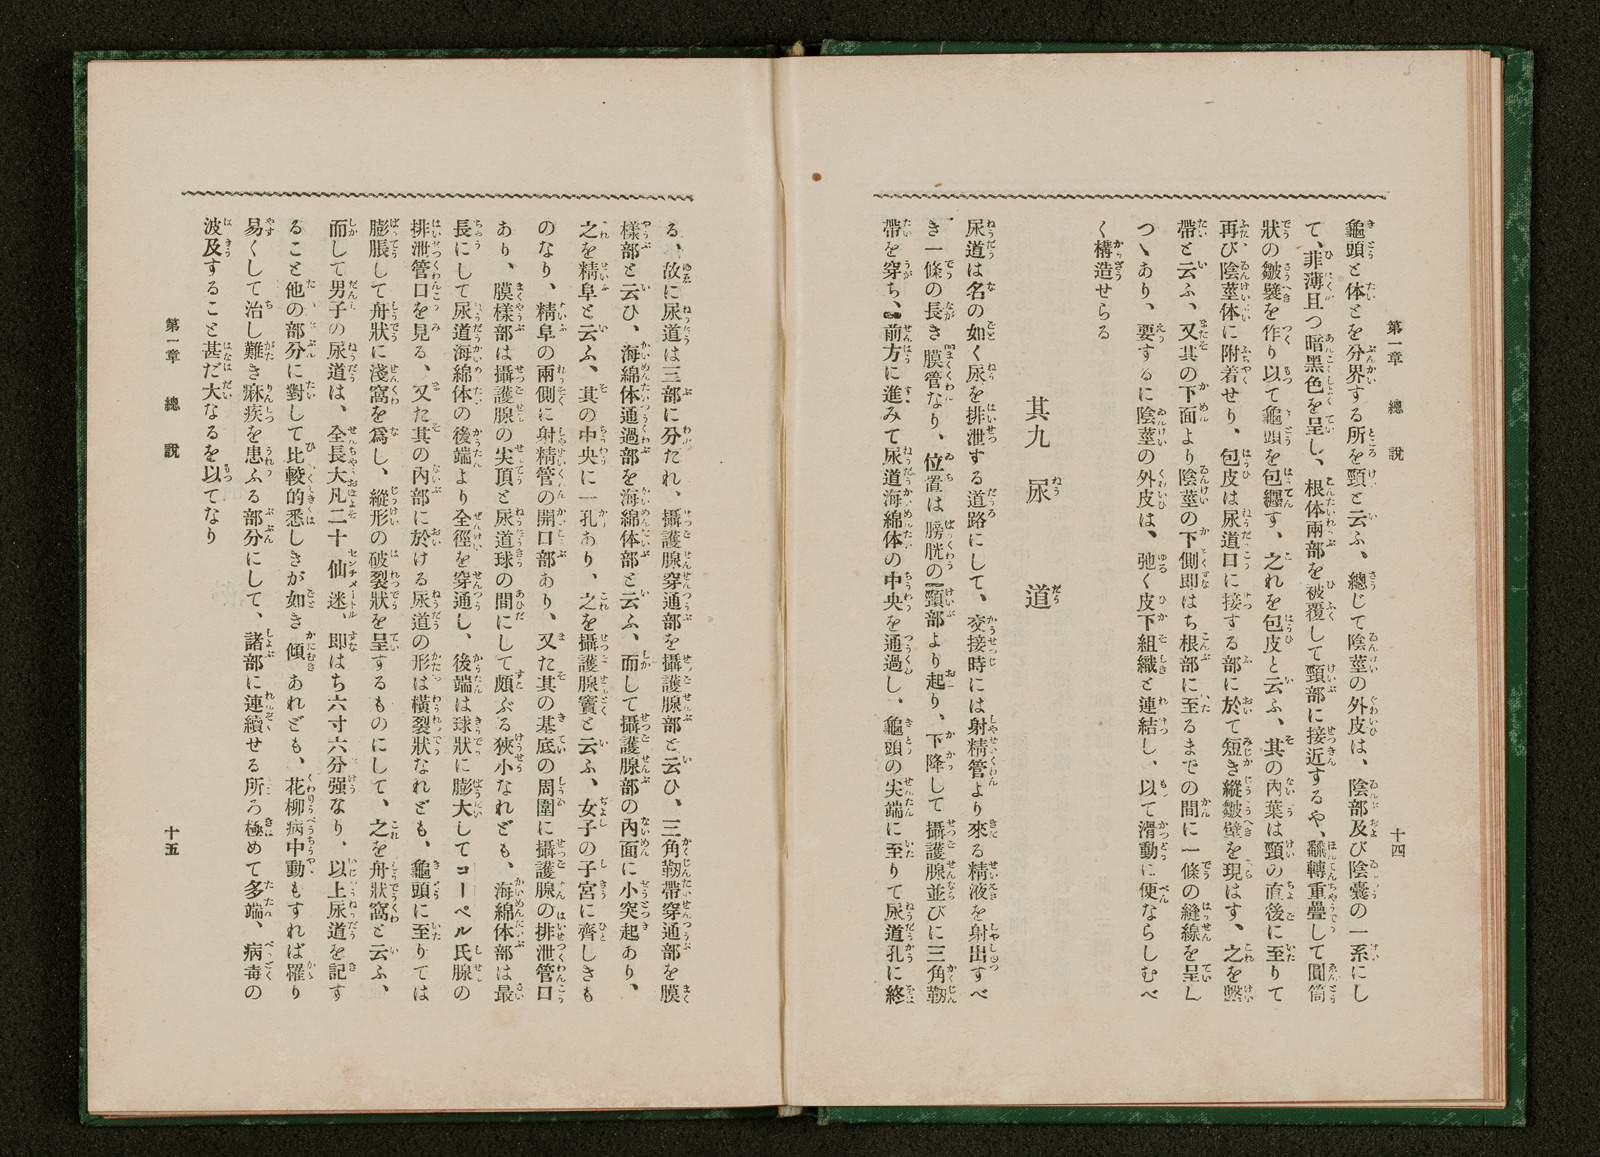 第一章　總說
十四
龜頭と体とを分界する所を頸と云ふ、總じて陰莖の外皮は、陰部及び陰嚢の一系にし
て、菲薄且つ暗黑色を呈し、根体兩部を被覆して頸部に接近するや、飜轉重疊して圓筒
狀の皺襞を作り以て龜頭を包纒す、之れを包皮と云ふ、其の內葉は頸の直後に至りて
再び陰莖体に附着せり、包皮は尿道口に接する部に於て短き縱皺壁を現はす、之を繫
帶と云ふ、又其の下面より陰莖の下側即はち根部に至るまでの間に一條の縫線を呈し
つゝあり、要するに陰莖の外皮は、弛く皮下組織と連結し、以て滑動に便ならしむべ
く構造せらる
其九　尿道
尿道は名の如く尿を排泄する道路にして、交接時には射精管より來る精液を射出すべ
き一條の長き膜管なり、位置は膀胱の頸部より起り、下降して攝護腺並びに三角靱
帶を穿ち、前方に進みて尿道海綿体の中央を通過し、龜頭の尖端に至りて尿道孔に終
る、故に尿道は三部に分たれ、攝護腺穿通部を攝護腺部と云ひ、三角靱帶穿通部を膜
樣部と云ひ、海綿体通過部を海綿体部と云ふ、而して攝護腺部の內面に小突起あり、
之を精阜と云ふ、其の中央に一孔あり、之を攝護腺竇と云ふ、女子の子宮に齊しきも
のなり、精阜の兩側に射精管の開口部あり、又た其の基底の周圍に攝護腺の排泄管口
あり、膜樣部は攝護腺の尖頂と尿道球の間にして頗ぶる狹小なれども、海綿体部は最
長にして尿道海綿体の後端より全徑を穿通し、後端は球狀に膨大してコーペル氏腺の
排泄管口を見る、又た其の內部に於ける尿道の形は橫裂狀なれども、龜頭に至りては
膨脹して舟狀に淺窩を爲し、縱形の破裂狀を呈するものにして、之を舟狀窩と云ふ、
而して男子の尿道は、全長大凡二十仙迷、即はち六寸六分强なり、以上尿道を記す
ること他の部分に對して比較的悉しきが如き傾あれども、花柳病中動もすれば罹り
易くして治し難き痳疾を患ふる部分にして、諸部に連續せる所ろ極めて多端、病毒の
波及すること甚だ大なるを以てなり
第一章　總說
十五